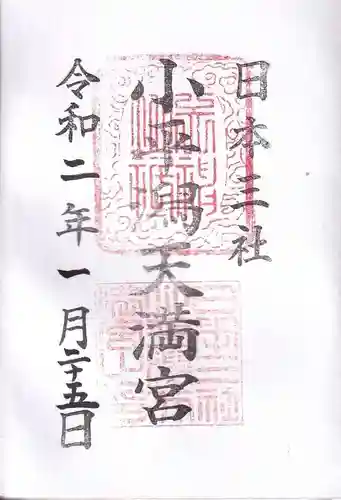 日本三社
小平潟天満宮
令和二年一月二十五日